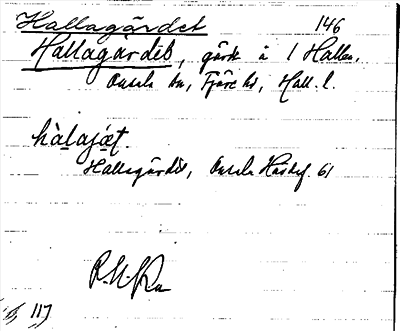 Hallagärdet 146
Hallagärdet, gård å 1 Hallen,
Onsala sn, Fjäre hd, Hall. l.
hàlajæt.
Hallagärdet, Onsala Hushf. 61
117